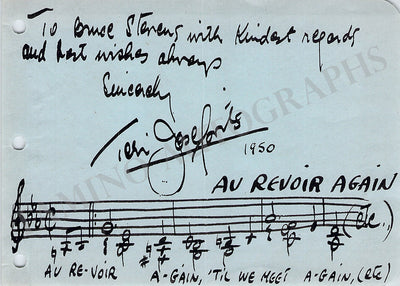 To Bruce Stevens with Kindest regards
and best wishes always
Sincerely
Teri Josefovits
1950
AU REVOIR AGAIN
(etc.,)
AU RE-VOIR A-GAIN, 'TIL WE MEET A-GAIN, (etc)